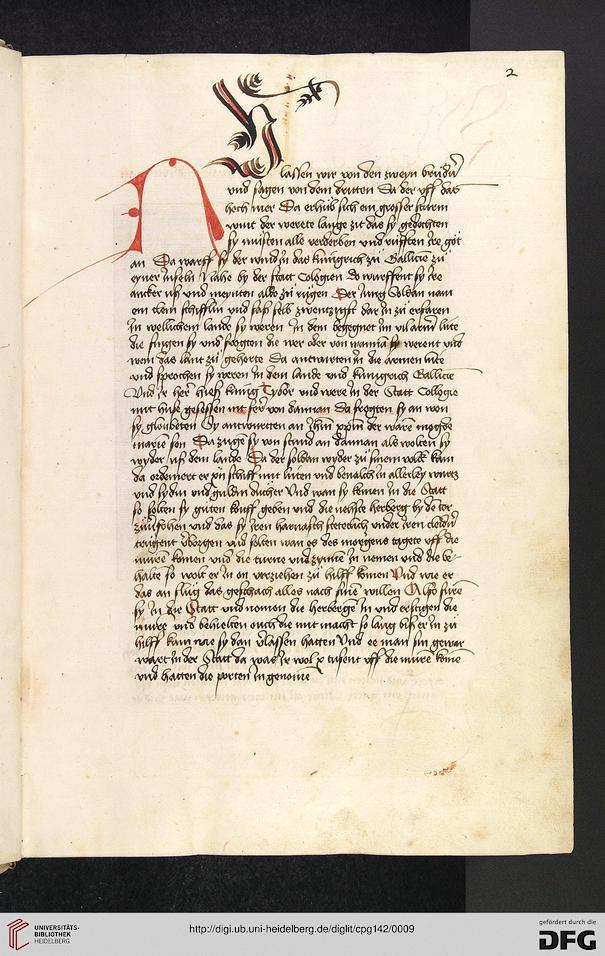 2
Nu
lassen wir von den zweyn brudern
und sagen von dem dritten Da der uff das
hoch mer Da erhub sich ein grosser sturm
und der werete lange zit das sy gedochten
sy musten alle verderben und rufften ire got
an Da warff sy der wind in das kunigrich zu Gallicie zu
eyner inseln nahe by der statt Cologien do warffent sy ire
ancker uß und meynten alle zu rugen Der jung Soldan nam
ein clein schifflin und saß selb zwentzigst dar in zu erfaren
in wellichem lande sy weren In dem begegnet im vil armer lute
die fingen sy und frogten die wer oder von wannan sy werent und
wem das lant zu gehorte Da antwurten in die armen lute
und sprochen sy weren in dem lande und kunigrich Gallicie
Und ir her hieß kunig Tybor und were in der Statt Cologie
mit huse gesessen nit ferr von dannan Da frogten sy an wen
sy gloubeten Sy antwurten an Jhm xpm der waren mogde
marien son Da zugen sy von stund an dannan als wolten sy
wyder uß dem lande Da der soldan wyder zu sinem volck kam
da ordeniert er xx schiff mit luten und bevalch in allerley
und sydin und guldin ducher Und wan sy komen in die Statt
so solten sy guten kouff geben und die nehste herberg by dem tor
und das sy iren harnasch stetteclich under iren cleidern
trugent verborgen und solten wan es des morgens tagete uff die
muren komen und die turne und zynnen in nemen und die be-
halten so wolt er in on verziehen zu hilff komen Und wie er
das an slug das geschach alles nach sinem willen Also furen
sy in die Statt und nomen die herbergen in und erstigen die
muren und behielten ouch die mit macht so lang biß er in zu
hilff kam wie sy dan verlassen hatten Und ee man sin gewar
wart in der Statt da was ir wol x tusent uff die muren komen
und hatten die porten in genomen
UNIVERSITÄTS-
BIBLIOTHEK
HEIDELBERG
http://digi.ub.uni-heidelberg.de/diglit/cpg142/0009
gefördert durch die
DFG